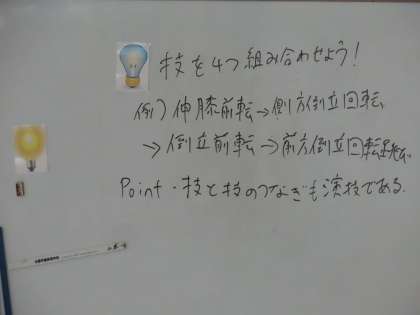 技を4つ組み合わせよう!
例)伸膝前転→側方倒立回転
→倒立前転→前方倒立回転跳び
Point・技と技のつなぎも演技である.